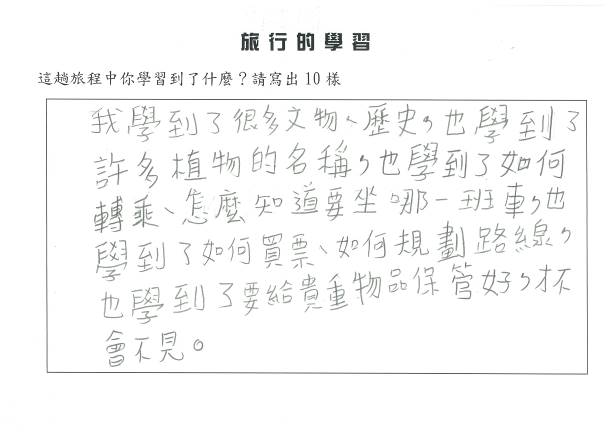 旅行的學習
這趟旅程中你學習到了什麼？請寫出10樣
我學到了很多文物、歷史，也學到了
許多植物的名稱，也學到了如何
轉乘、怎麼知道要坐哪一班車，也
學到了如何買票、如何規劃路線，
也學到了要給貴重物品保管好，才不
會不見。